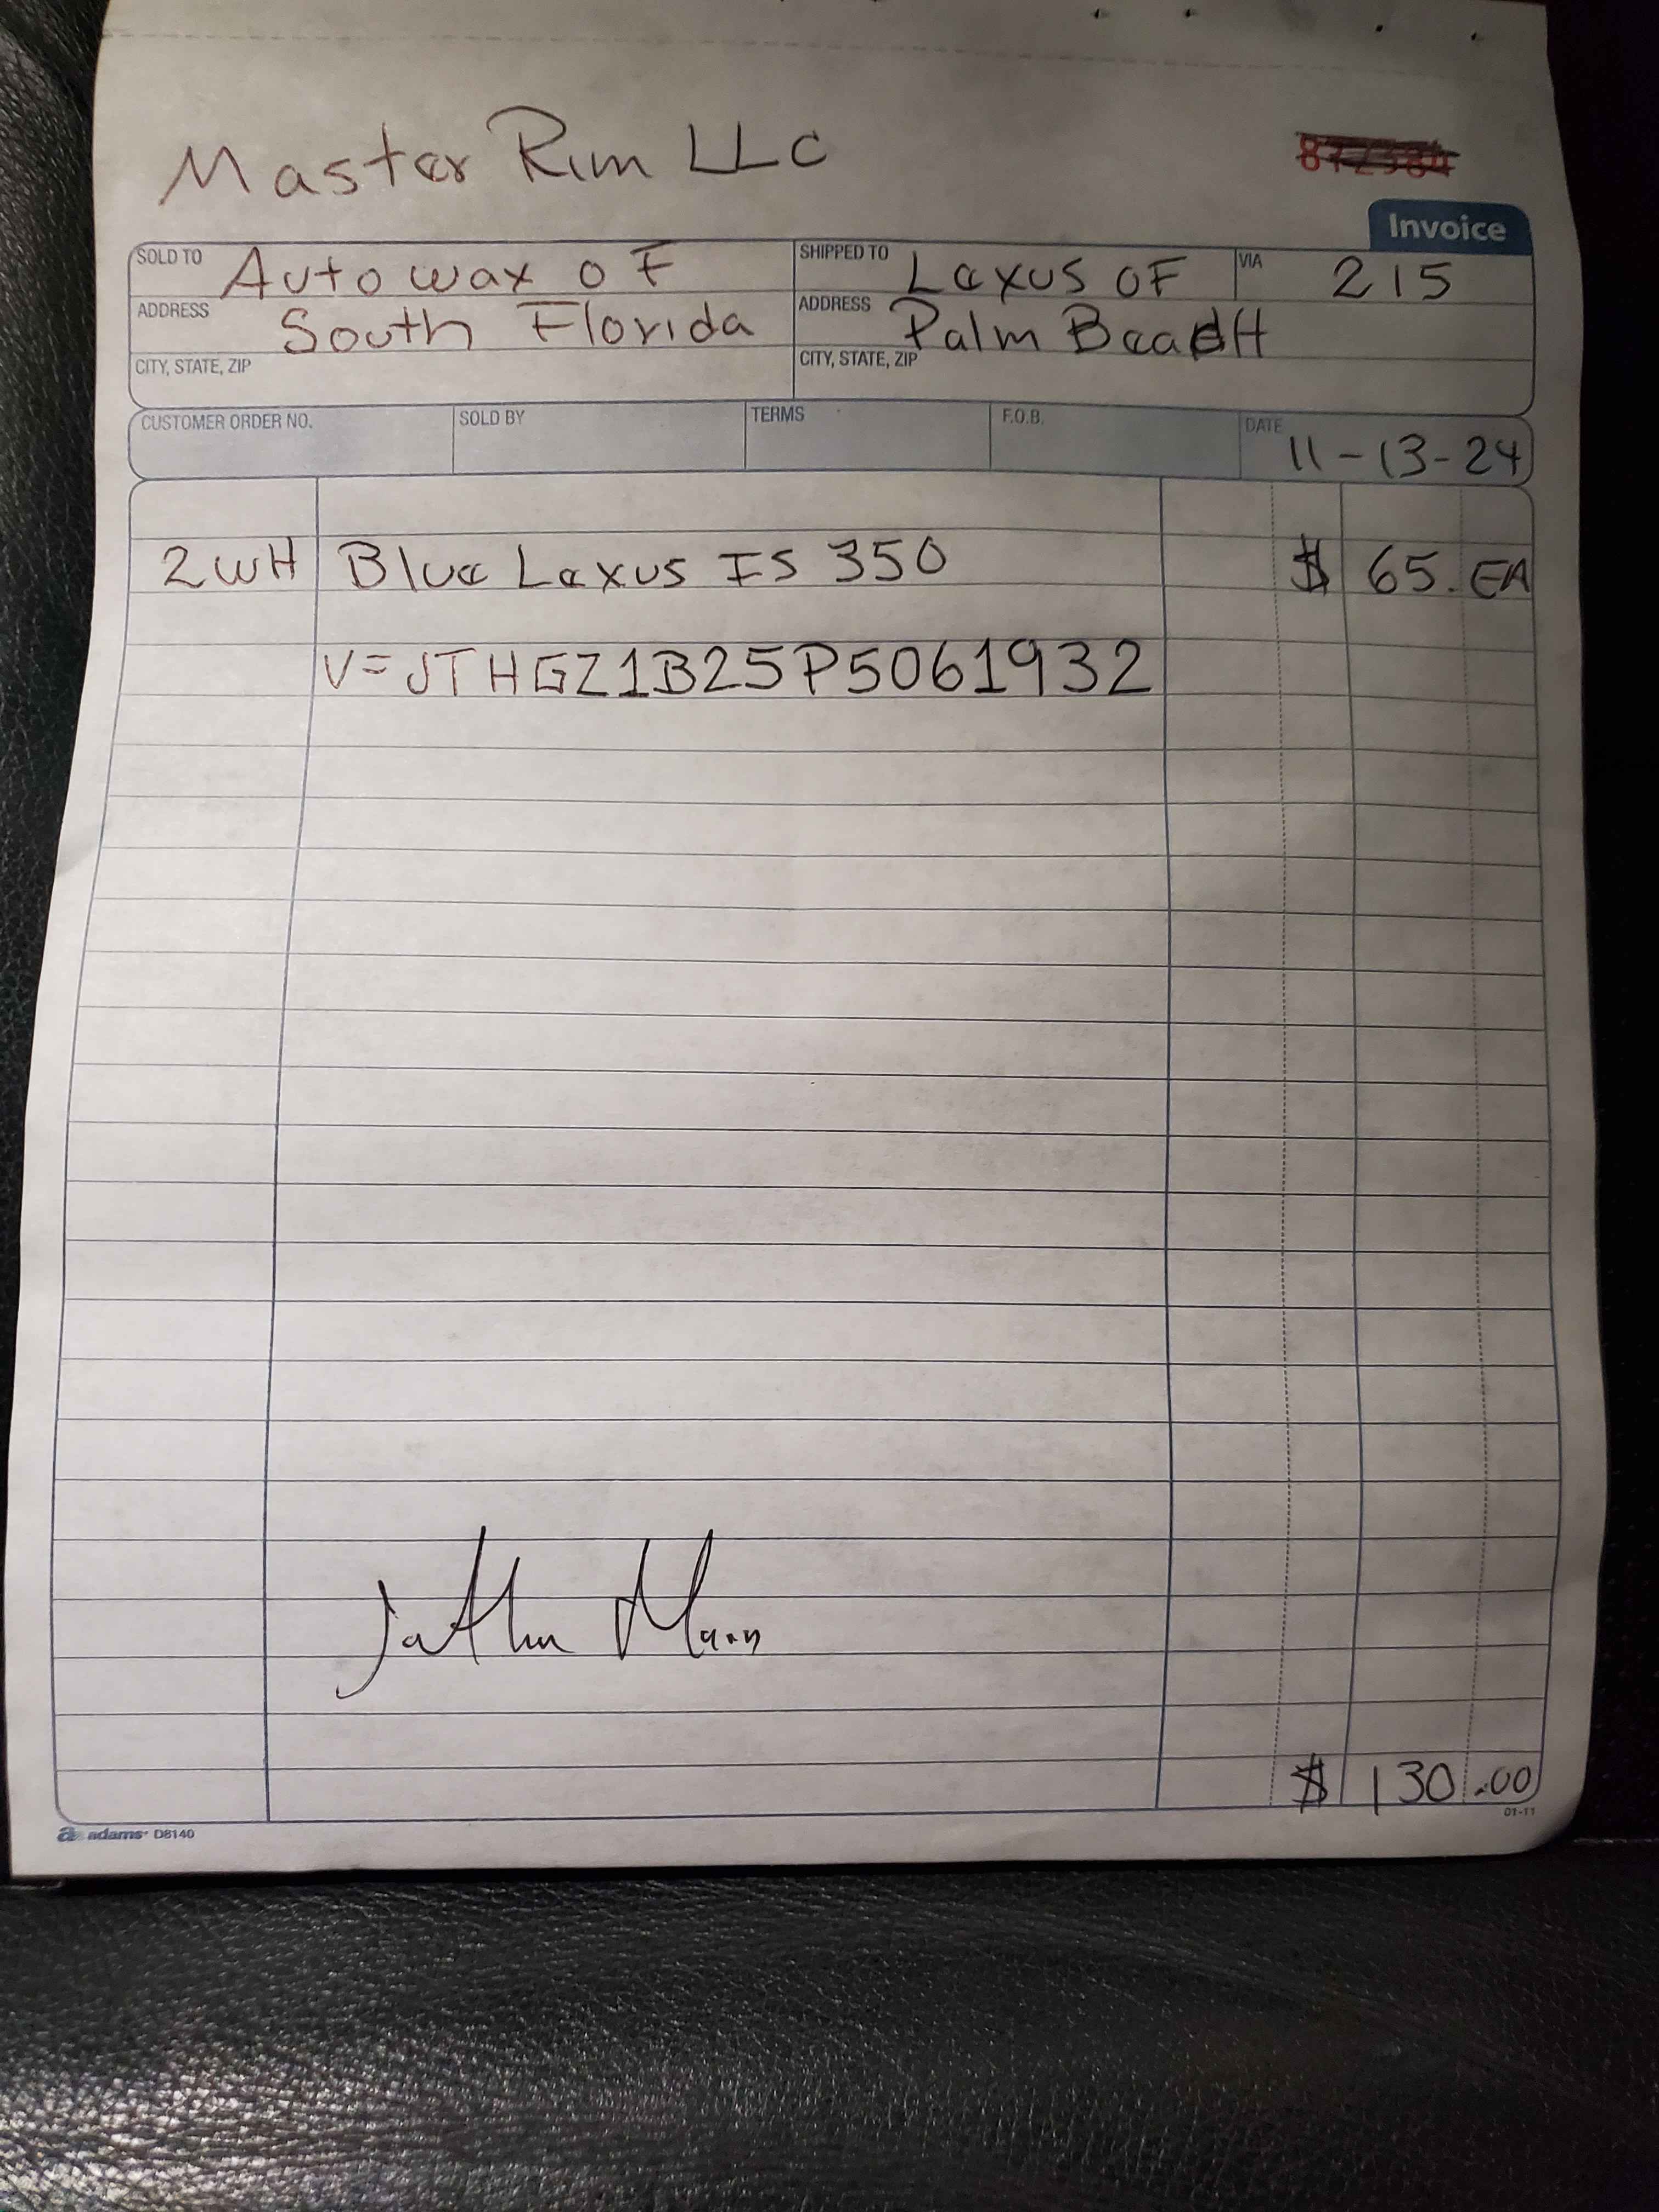 Master Rim LLC
Invoice
SOLD TO Auto wax of
SHIPPED TO Lexus of
VIA 215
ADDRESS South Florida
ADDRESS Palm Beach
CITY, STATE, ZIP
CITY, STATE, ZIP
CUSTOMER ORDER NO. SOLD BY TERMS F.O.B. DATE 11-13-24
2 WH Blue Lexus IS 350 $ 65. EA
V=JTHGZ1B25P5061932
$ 130.00
01-11
a adams D8140